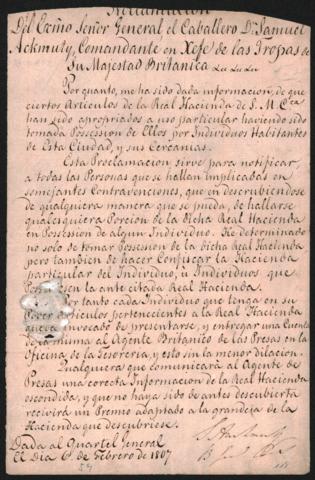 Proclamacion
Del Excmo Señor General el Caballero Dn Samuel
Ackmuty, Comandante en Xefe de las Tropas de
Su Majestad Britanica
Por quanto, me ha sido dada informacion, de que
ciertos Articulos de la Real Hacienda de S. M. Cca
han sido apropiados a uso particular haviendo sido
tomada Possession de Ellos por Individuos Habitantes
de Esta Ciudad, y sus Cercanias.
Esta Proclamacion sirve para notificar,
a todas las Personas que se hallan implicadas en
semejantes Contravenciones, que en descubriendose
de qualquiera manera que se pueda, de hallarse
qualesquiera Porcion de la Dicha Real Hacienda
en Possession de algun Individuo. He determinado
no solo de tomar Possesion de la dicha Real Hacienda
pero tambien de hacer Confiscar la Hacienda
particular del Individuo, ù Individuos que
Possediesen la ante citada Real Hacienda.
Por tanto cada Individuo que tenga en su
Poder Articulos pertenecientes a la Real Hacienda
queda invocado de presentarse, y entregar una Cuenta
de la misma al Agente Britanico de las Presas en la
Oficina de la Tesoreria, y esto sin la menor Dilacion.
Qualquiera que comunicará al Agente de
Presas una corecta Informacion de la Real Hacienda
escondida, y que no haya sido de antes descubierta
recivirá un Premio adaptado a la grandeja de la
Hacienda que descubriese.
Dada al Quartel General
El Dia 6 de Febrero de 1807